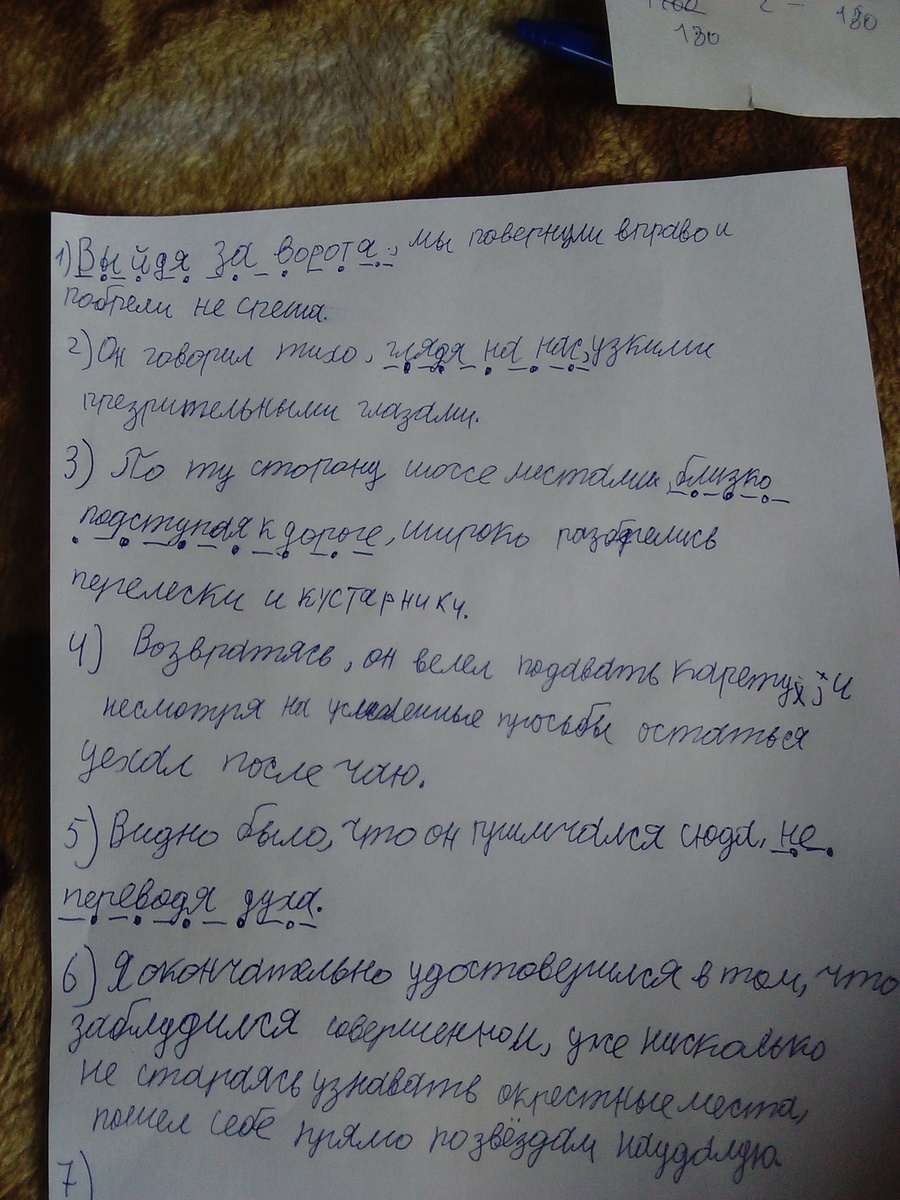 180
2 -
180
1) Выйдя за ворота, мы повернули вправо и
побрели не спеша.
2) Он говорил тихо, глядя на нас, узкими
презрительными глазами.
3) По ту сторону шоссе местами, близко
подступая к дороге, широко разбрелись
перелески и кустарники.
4) Возвратясь, он велел подавать карету, и
несмотря на усиленные просьбы остаться
уехал после чаю.
5) Видно было, что он примчался сюда, не
переводя духа.
6) Я окончательно удостоверился в том, что
заблудился совершенно и, уже нисколько
не стараясь узнавать окрестные места,
пошел себе прямо по звёздам наудалую.
7)